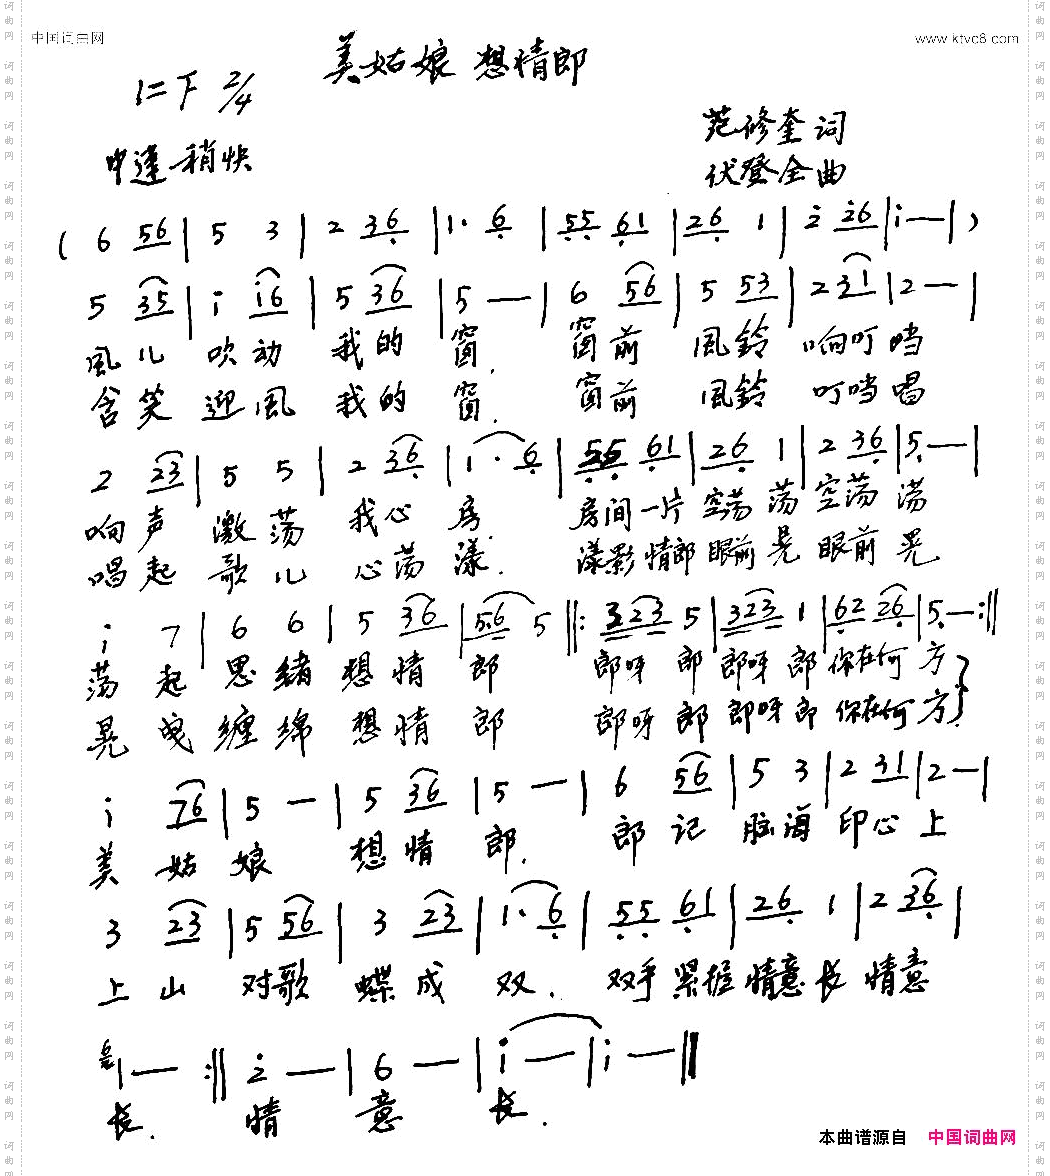 中国词曲网
www.ktvc8.com
美姑娘想情郎
1=下 2/4
中速稍快
范修奎词
伏登全曲
( 6 56 | 5 3 | 2 36 | 1· 6 | 55 61 | 26 1 | 2 26 | i — | )
5 35 | i i6 | 5 36 | 5 — | 6 56 | 5 53 | 2 31 | 2 — |
風儿 吹动 我的 窗. 窗前 風鈴 响叮 噹
含笑 迎風 我的 窗. 窗前 風鈴 叮噹 唱
2 23 | 5 5 | 2 36 | 1· 6 | 55 61 | 26 1 | 2 36 | 5 — |
响声 激荡 我心 房. 房间一片 空荡荡 空荡 荡
唱起 歌儿 心荡 漾. 漾影情郎 眼前晃 眼前 晃
i 7 | 6 6 | 5 36 | 56 5 ‖: 323 5 | 323 1 | 62 26 | 5 — :‖
荡起 思绪 想情 郎 郎呀郎 郎呀郎 你在何 方
晃曳 缠绵 想情 郎 郎呀郎 郎呀郎 你在何 方
i 76 | 5 — | 5 36 | 5 — | 6 56 | 5 3 | 2 31 | 2 — |
美姑 娘 想情 郎. 郎记 脑海 印心 上
3 23 | 5 56 | 3 23 | 1· 6 | 55 61 | 26 1 | 2 36 |
上山 对歌 蝶成 双. 双手紧握 情意长 情意
1 — :‖ 2 — | 6 — | i — | i — ‖
长. 情 意 长.
本曲谱源自 中国词曲网